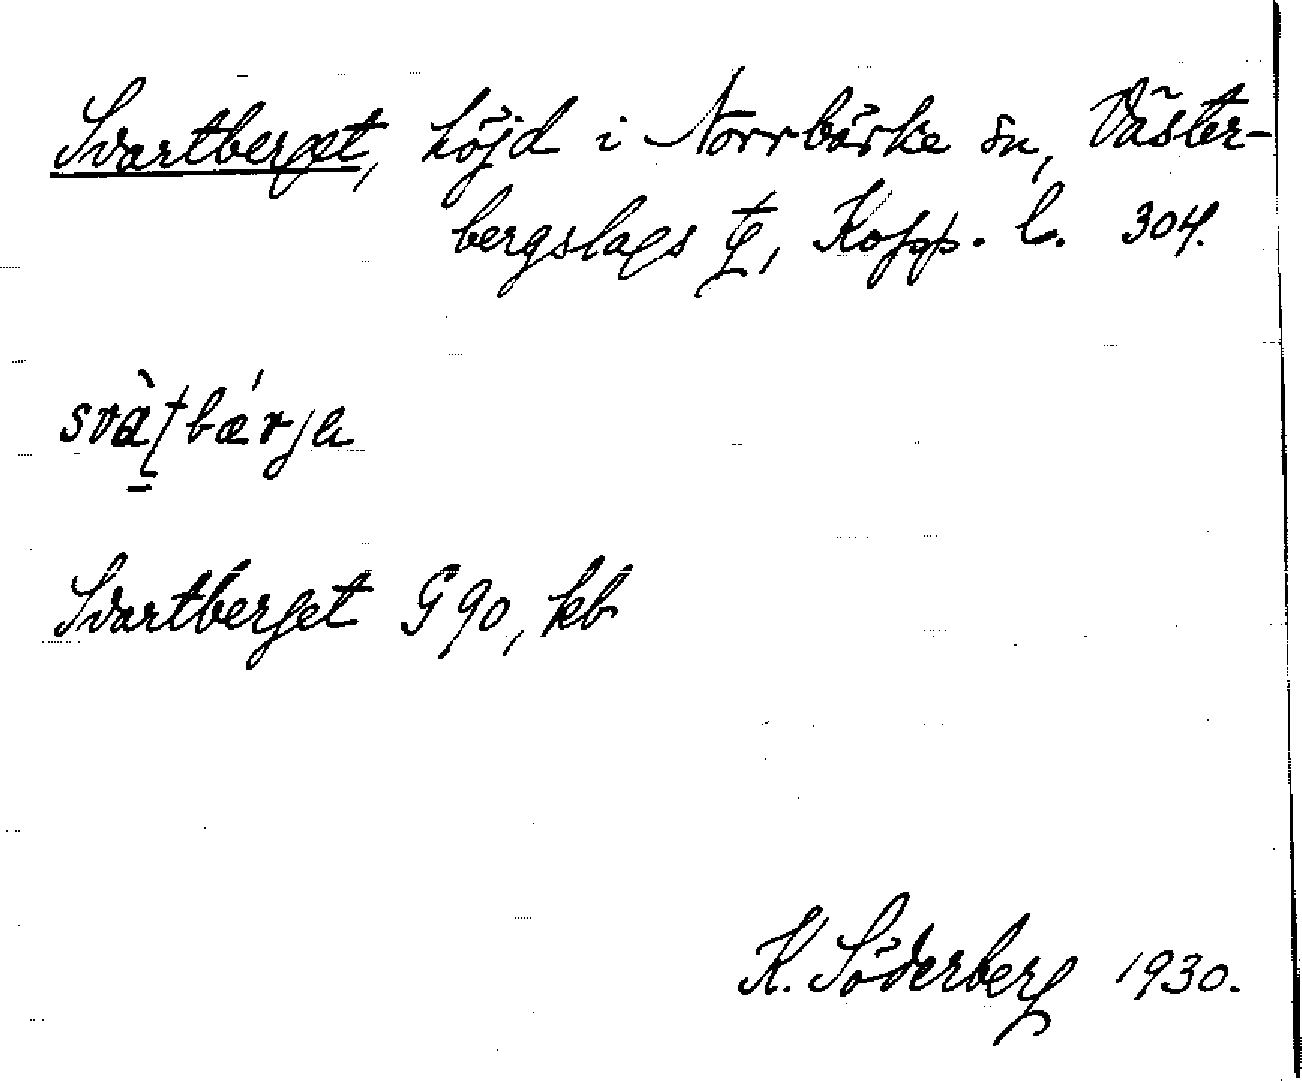 Svartberget, höjd i Norrbärke sn, Väster-
bergslags tg, Kopp. l. 304.
svàʈbǽrjɑ
Svartberget G 90, kb
K. Söderberg 1930.